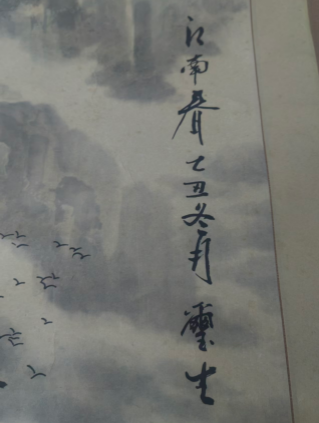 江南春乙丑冬月璽生